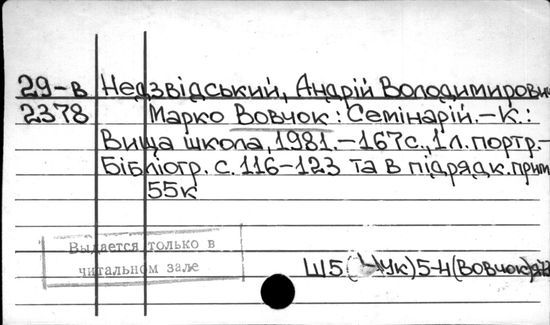 29-в Недзвідський, Андрій Володимирович
2378 Марко Вовчок: Семінарій.-К.:
Вища школа, 1981.-167с., 1л. портр.-
Бібліогр. с. 116-123 та в підрядк. прим
55к
Выдается только в
читальном зале
Ш5(4Ук)5-4(Вовчок)